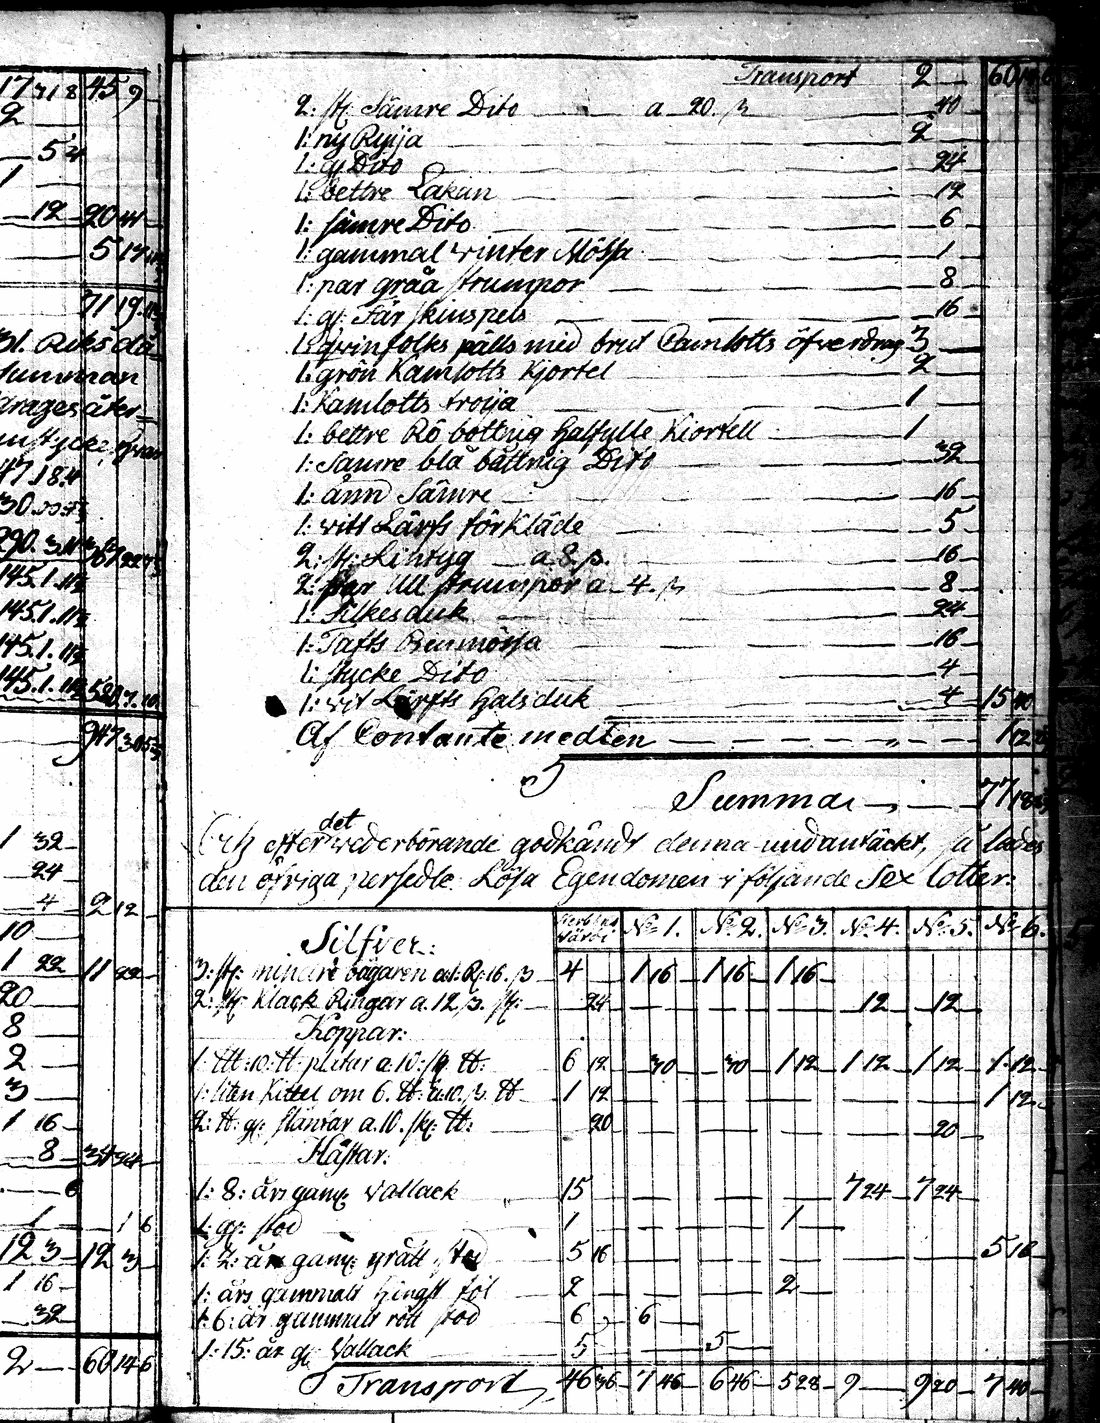 17 31 8 45 9
2
5 4
1
12 20 41
5 14
71 19
31. Riks da=
Summan
dragesåter=
47.18.4
30.
290. 3. 367
145.1.11½
145.1.11½
145.1.11½
145.1.11½ 580.7.10
947 30
1 32
24
4 2 12
10
1 22 11 22
20
8
2
3
1 16
8 34 24
6
1 1 6
12 3 12 3
1 16
32
2 60 14 6
Transport 2 60 14 6
2: st. Sämre Dito a 20. β 40
1: ny Ryija 2
1: gl Dito 24
1: bettre Lakan 12
1: sämre Dito 6
1: gammal winter Mössa 1
1: par gråa strumpor 8
1: gl. Får skinspels 16
1: qwinfolks päls med brut Camlotts öfverdrag 3
1: grön Kamlotts Kjortel 2
1: Kamlotts troija 1
1: bettre Rö bottnig Halfylle Kiortell 1
1: Sämre blå båttnig Dito 32
1: änn Sämre 16
1: witt Lärfs förkläde 5
2: st. Lintyg a 8 β. 16
2: par Ull strumpor a 4. β 8
1: Silkesduk 24
1: Tafts Binmössa 16
1: stycke Dito 4
1: wit Lärfts Halsduk 4 15 40
Af Contante medlen 1 12
Summa 77 18
Och efter det wederbörande godkändt denna undantäckt, så lades
den öfriga persedle Lösa Egendomen i följande Sex lotter:
Silfver: Sterbhus Värde No 1. No 2. No 3. No 4. No 5. No 6.
3: st. mindre bägaren a 1. R. 16. β 4 1 16 1 16 1 16
2: st. Klack Ringar a. 12 β. st. 24 12 12
Koppar:
1: tt: 10: tt: plåtar a 10: sk. tt: 6 12 30 30 1 12 1 12 1 12 1 12
1: liten Kittel om 6. tt: a 10. β. tt 1 12 1 12
2: tt: gl: slantar a. 10. sk. tt: 20 20
Hästar:
1: 8: års gaml. Vallack 15 7 24 7 24
1: gl. stod 1 1
1: 2: års gaml. grått stod 5 16 5 16
1: års gammalt hingst föl 2 2
1: 6: år gammalt rött stod 6 6
1: 15: år gl. Vallack 5 5
Transport 46 36 7 46 6 46 5 28 9 9 20 7 40